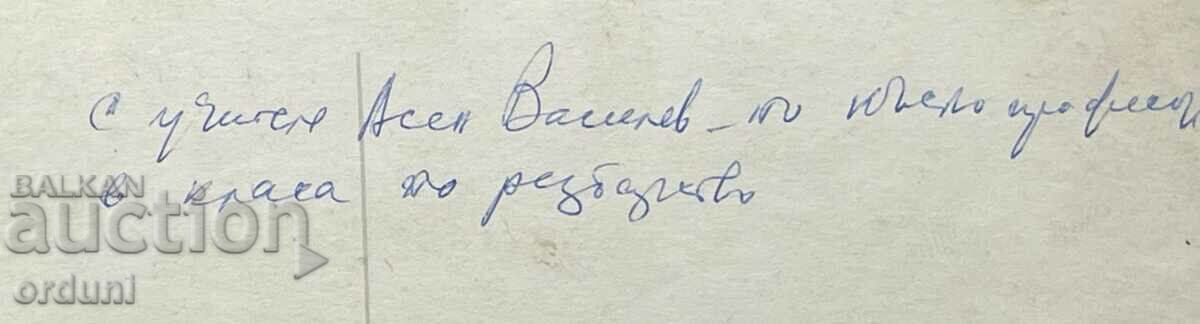 с учителя Асен Василев – по късно професор
в класа по резбарство
BALKAN
auction
orduni